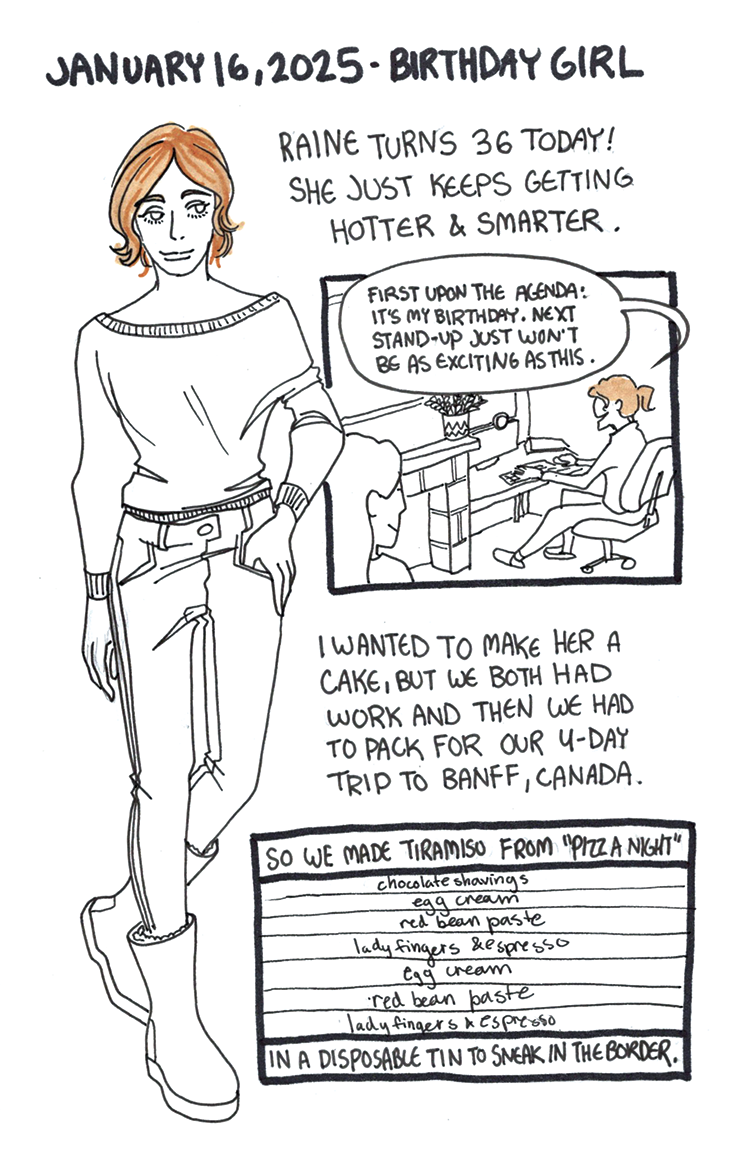 JANUARY 16, 2025 - BIRTHDAY GIRL
RAINE TURNS 36 TODAY!
SHE JUST KEEPS GETTING
HOTTER & SMARTER.
FIRST UPON THE AGENDA:
IT'S MY BIRTHDAY. NEXT
STAND-UP JUST WON'T
BE AS EXCITING AS THIS.
I WANTED TO MAKE HER A
CAKE, BUT WE BOTH HAD
WORK AND THEN WE HAD
TO PACK FOR OUR 4-DAY
TRIP TO BANFF, CANADA.
SO WE MADE TIRAMISU FROM "PIZZA NIGHT"
chocolate shavings
egg cream
red bean paste
lady fingers & espresso
egg cream
red bean paste
lady fingers & espresso
IN A DISPOSABLE TIN TO SNEAK IN THE BORDER.